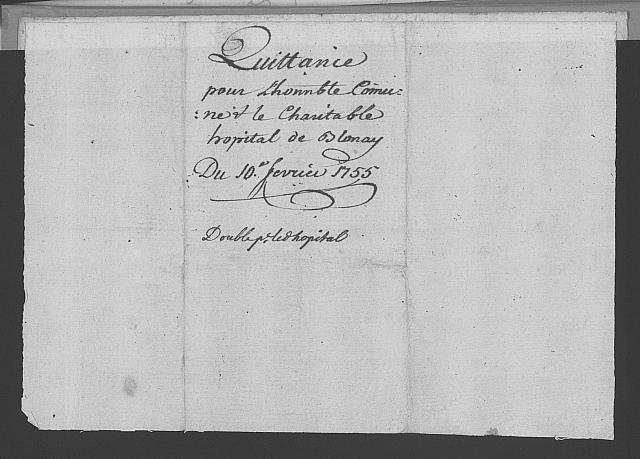 Quittance
pour L'honnble Comu:
:ne & le Charitable
hopital de Blonay
Du 10.e fevrier 1755
Double pr. led hopital